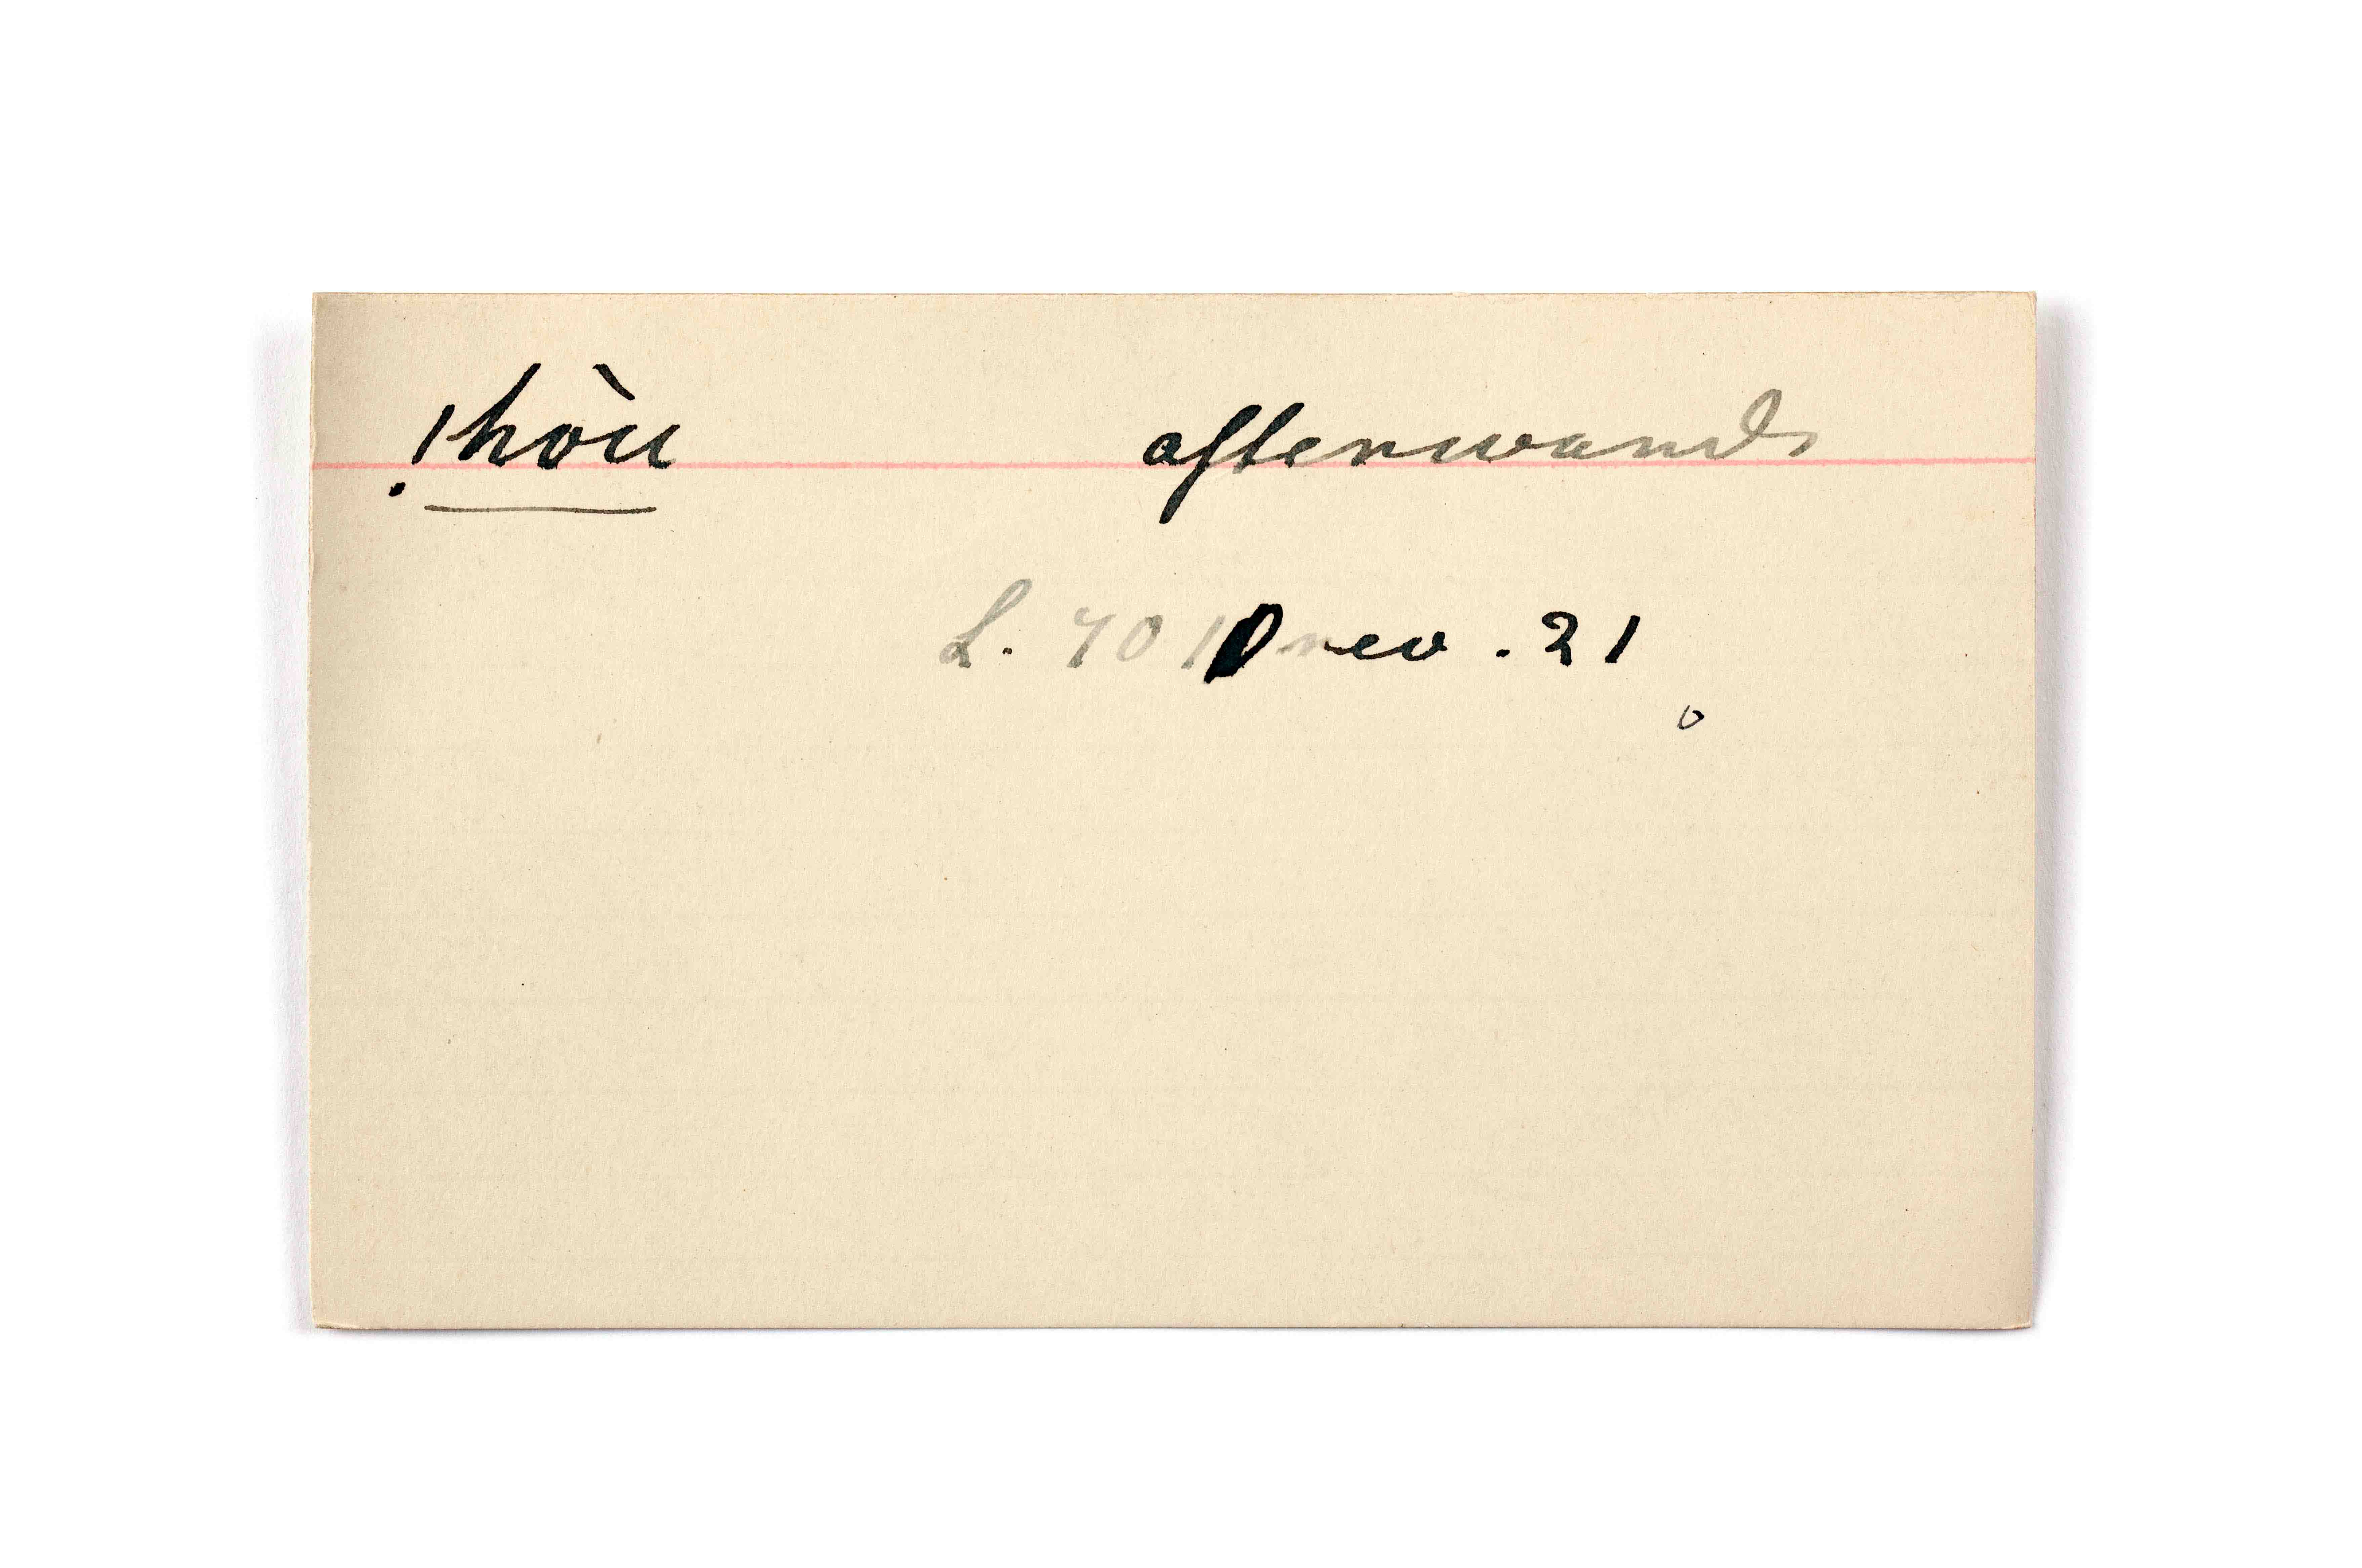 !hòu afterwards
L. 701 rev. 21